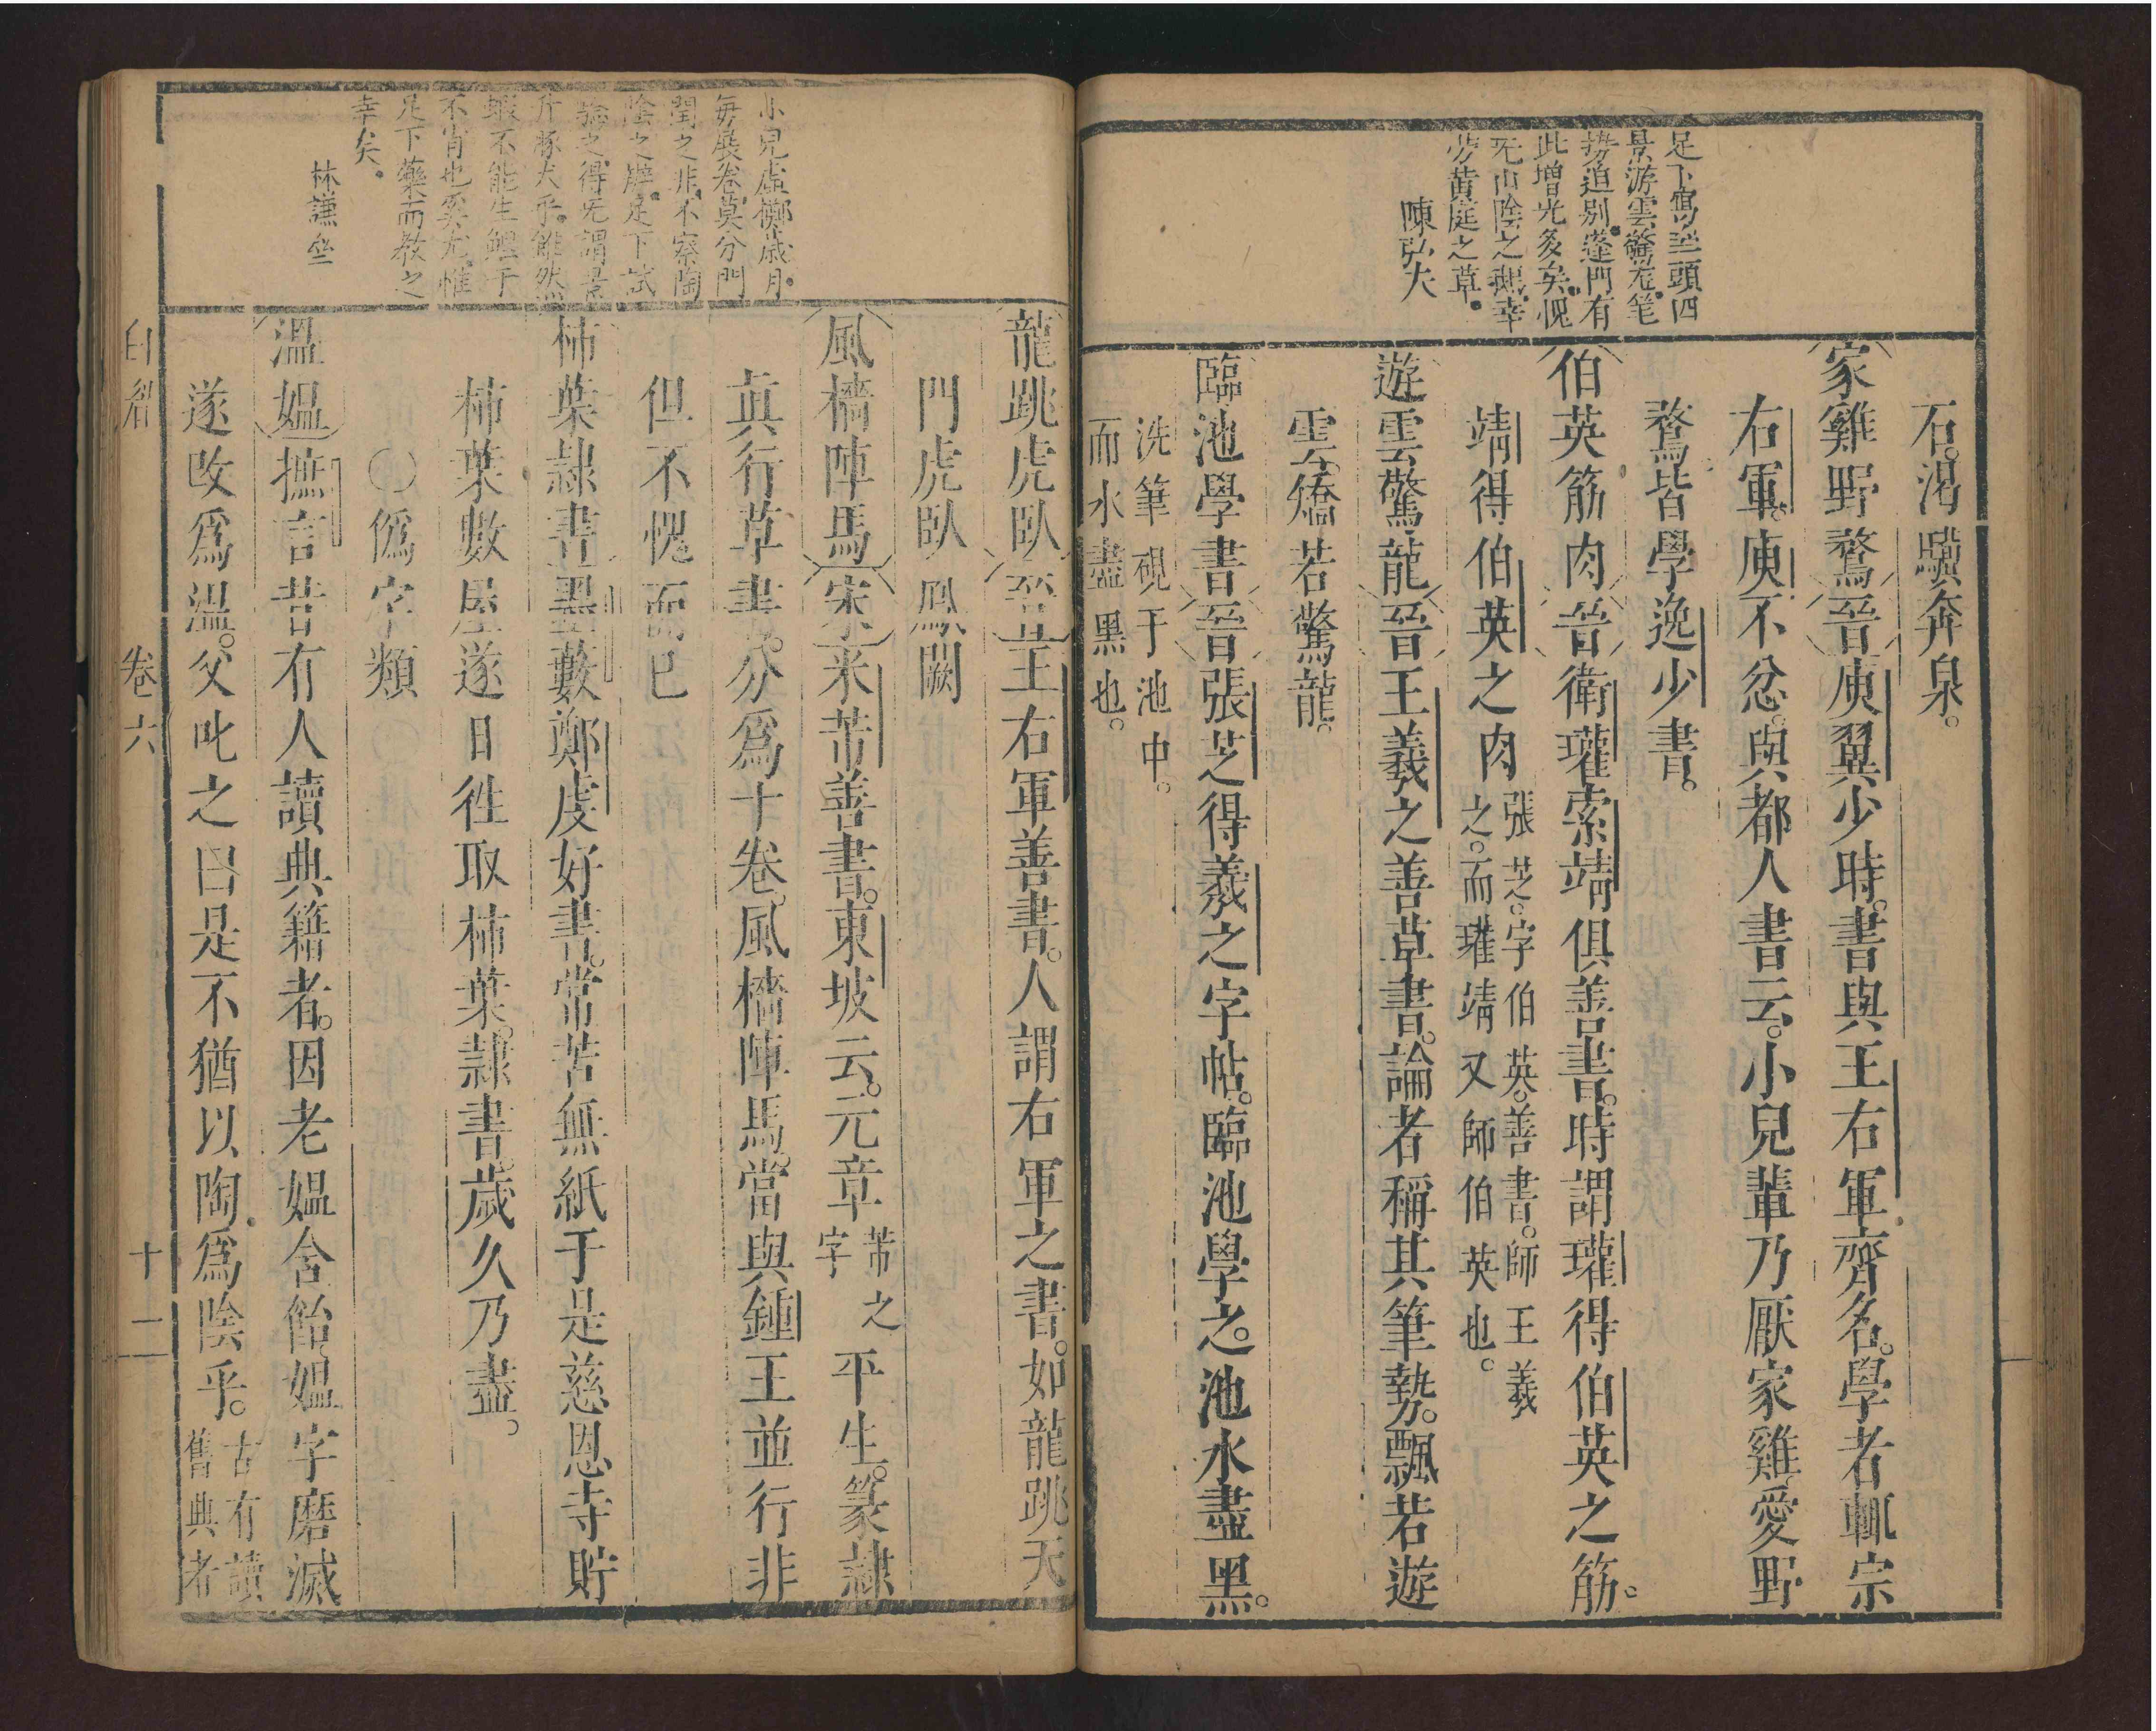 足下寫㘴頭四
景游雲驚龙笔
勢道别蓬門有
此增光多矣愧
无山陰之鵝幸
步黄庭之草
陳弘大
石渴驥奔泉
家雞野鶩晉庾翼少時書與王右軍齊名學者輒宗
右軍庾不忿與都人書云小兒輩乃厭家雞愛野
鶩皆學逸少書
伯英筋肉晉衛瓘索靖俱善書時謂瓘得伯英之筋
靖得伯英之肉張芝字伯英善書師王羲
之而瓘靖又師伯英也
遊雲驚龍晉王羲之善草書論者稱其筆勢飄若遊
雲矯若驚龍
臨池學書晉張芝得羲之字帖臨池學之池水盡黑
洗筆硯于池中
而水盡黑也
小兒虛擲歲月
每展卷莫分門
閏之非不察陶
陰之辟足下試
論之得无謂景
升豚犬乎雖然
蝦不能生鯉于
不肖也奚尤惟
足下藥而教之
幸矣
林謙㘴
龍跳虎臥晉王右軍善書人謂右軍之書如龍跳天
門虎臥鳳闕
風檣陣馬宋米芾善書東坡云元章芾之
字平生篆隷
真行草書分爲十卷風檣陣馬當與鍾王並行非
但不愧而已
柿葉隷書墨藪鄭虔好書常苦無紙于是慈恩寺貯
柿葉數屋遂日徃取柿葉隷書歲久乃盡
〇僞字類
溫媼摭言昔有人讀典籍者因老媼含飴媼字磨滅
遂改爲溫父叱之曰是不猶以陶爲陰乎古有讀
舊典者
卷六
十二